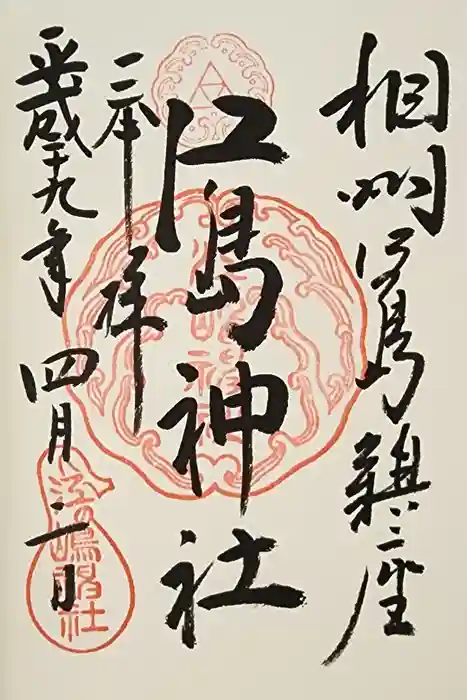 相州江島鎮座
江島神社
奉拝
平成二十九年四月二日
江嶋神社